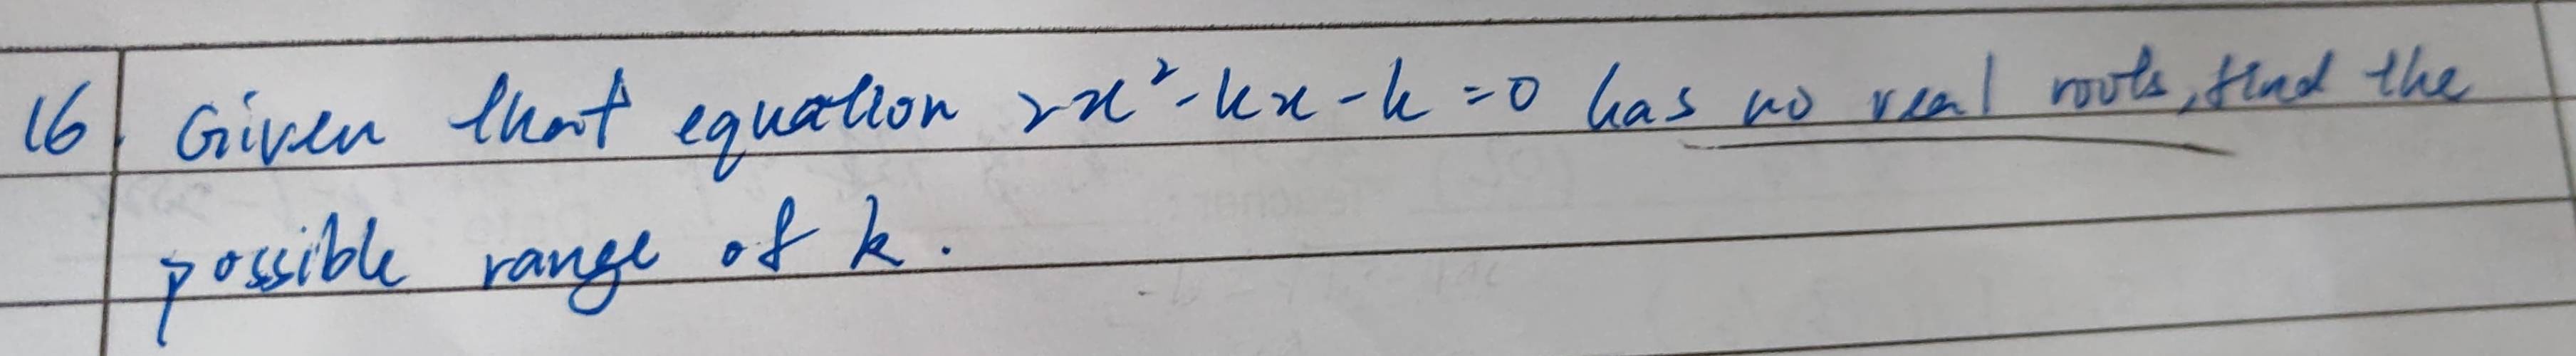 16. Given that equation 2x² - kx - k = 0 has no real roots, find the
possible range of k.